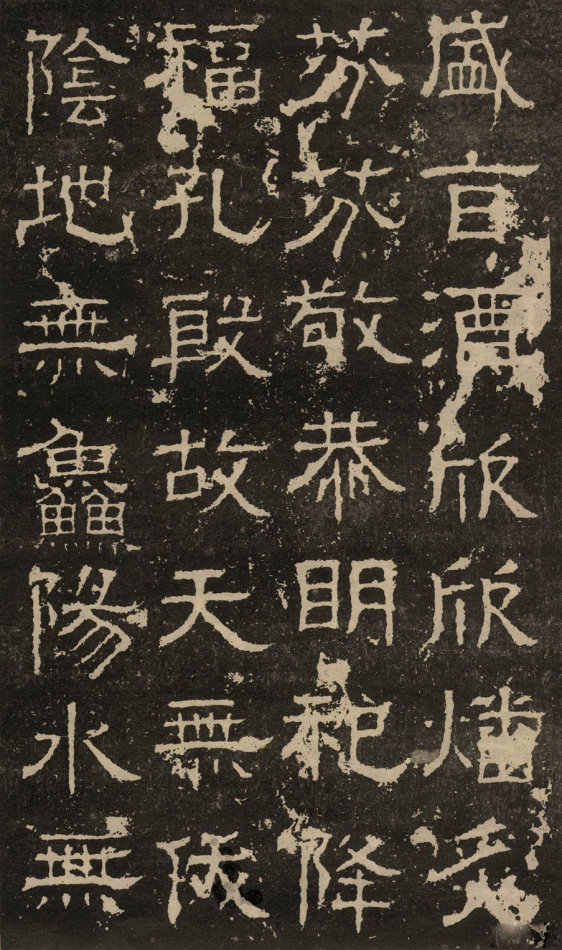 盛旨酒欣欣燔炙
芬芬敬恭明祀降
福孔殷故天無伏
陰地無鱻陽水無